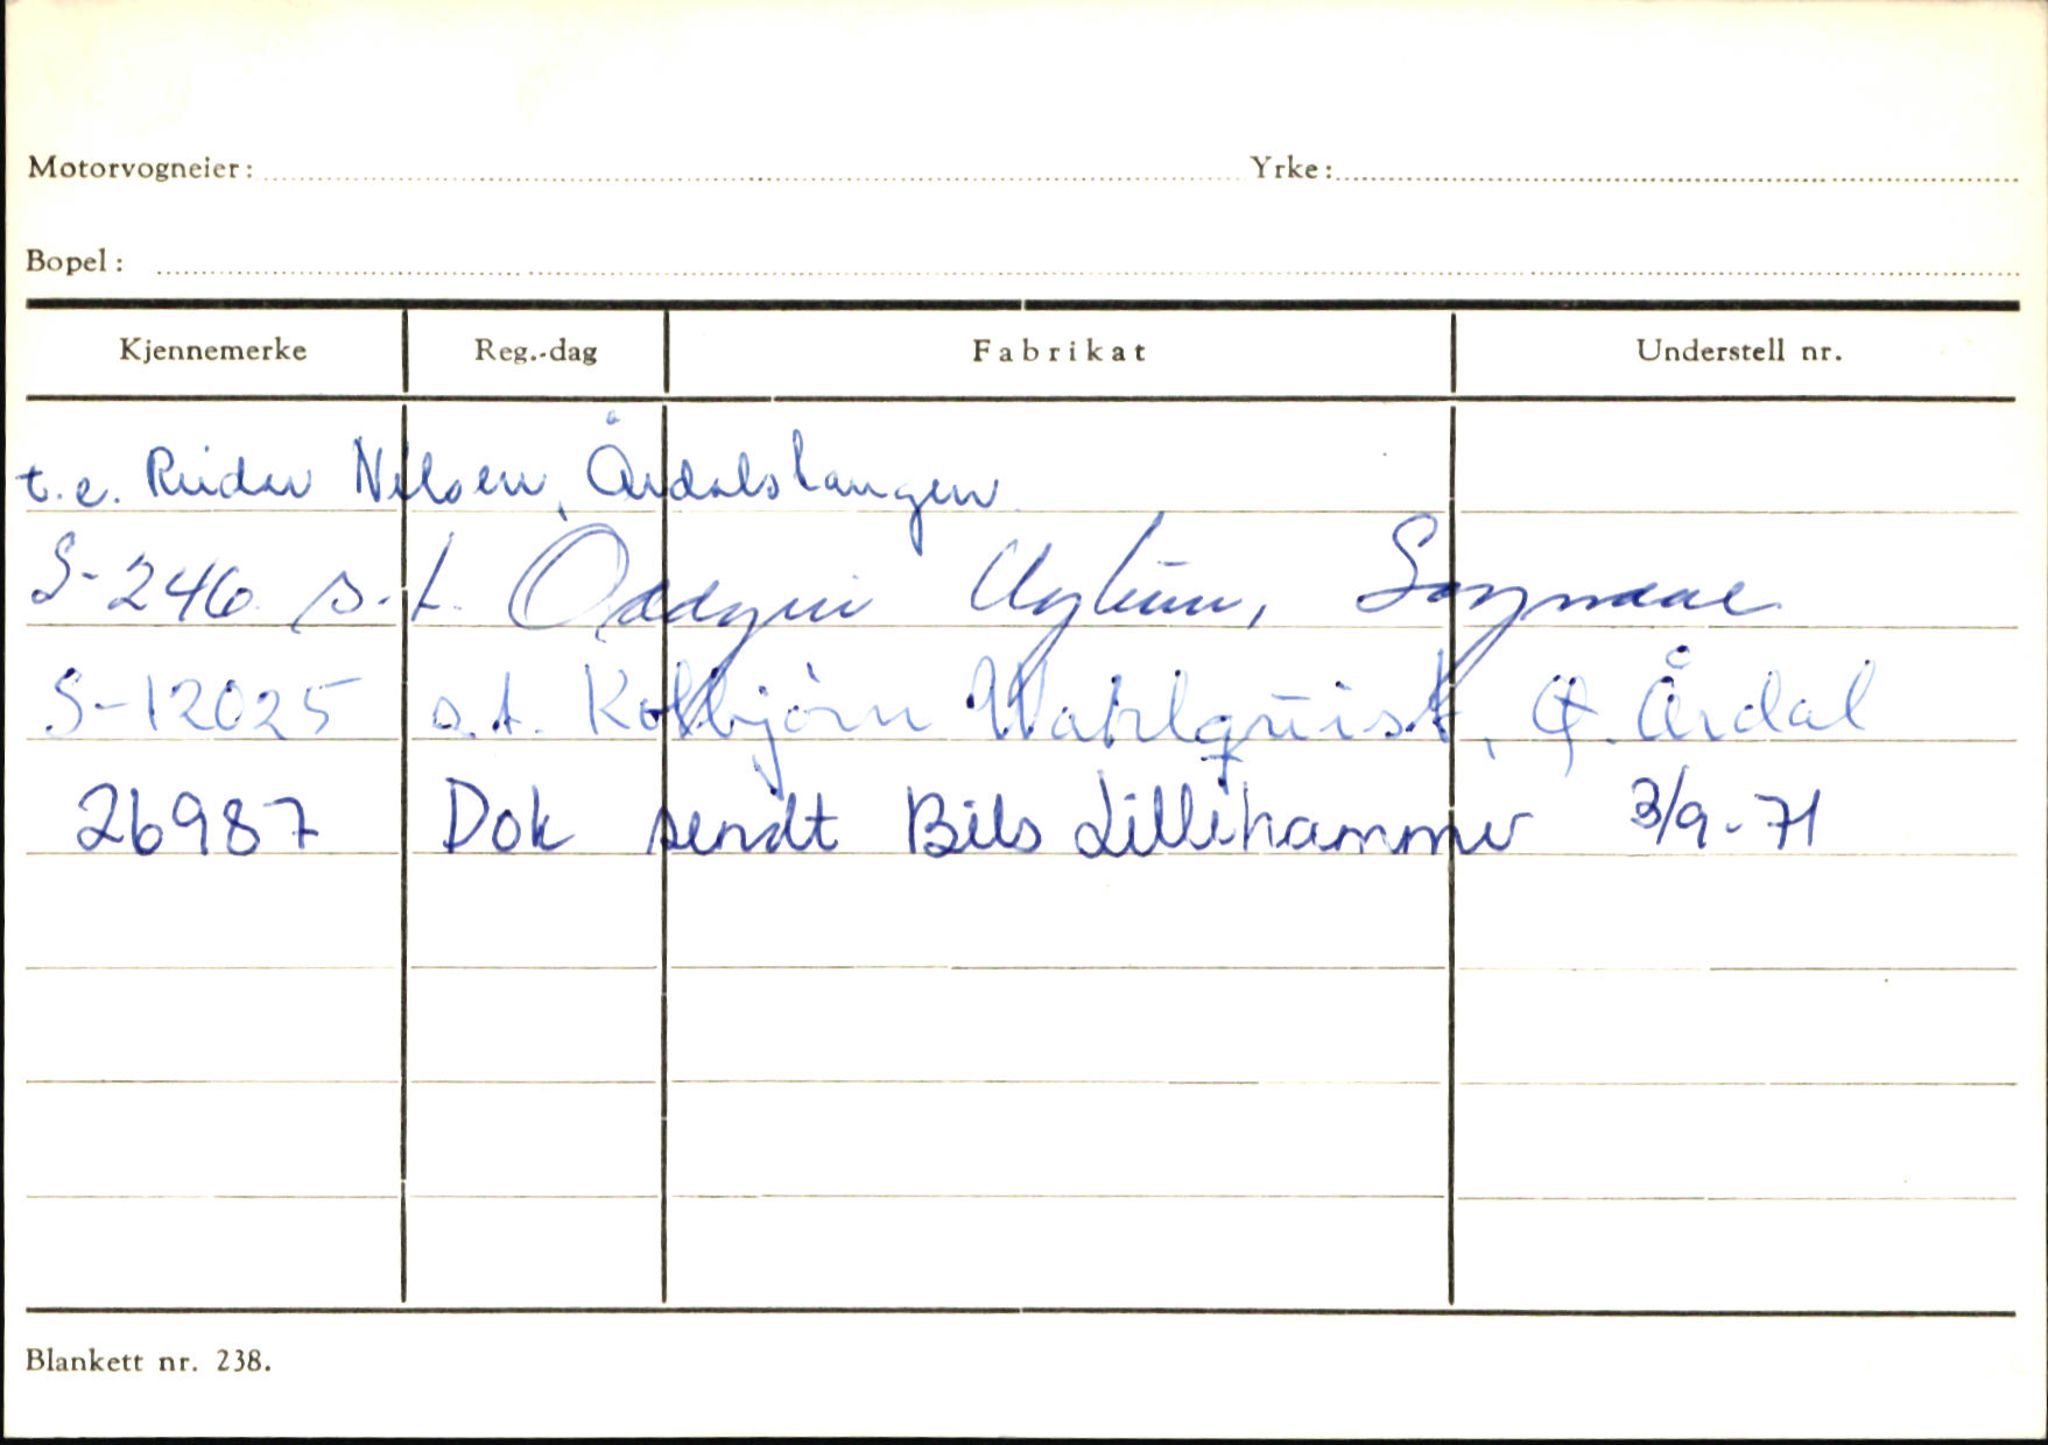 Motorvogneier: Yrke:
Bopel:
Kjennemerke Reg.-dag Fabrikat Understell nr.
t.e. Reidar Nilsen, Årdalstangen
S-246 s.t. Oddgeir Uglum, Sogndal
S-12025 s.t. Kolbjørn Wahlquist, Ø. Årdal
26987 Dok sendt Bils Lillehammer 3/9-71
Blankett nr. 238.